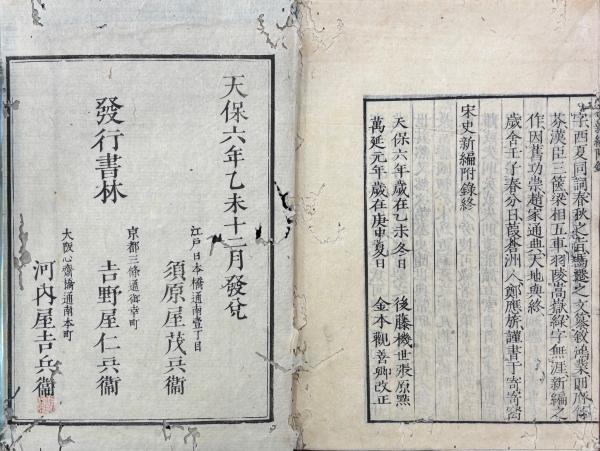 字酉夏同詞春秋之旨馬遷之文纂敘鴻業則儕
芥漢臣三篋梁相五車羽陵嵩嶽綠字無涯新編之
作因舊功崇趙家通典天地與終
歲舍壬子春分日葭蒼洲人鄭應旂謹書于寄寄窩
宋史新編附錄終
天保六年歲在乙未冬日 後藤機世張原點
萬延元年歲在庚申夏日 金本觀善卿改正
天保六年乙未十二月發兌
江戸日本橋通南壹丁目
須原屋茂兵衞
京都三條通御幸町
吉野屋仁兵衞
大阪心齋橋通南本町
河内屋吉兵衞
發行書林